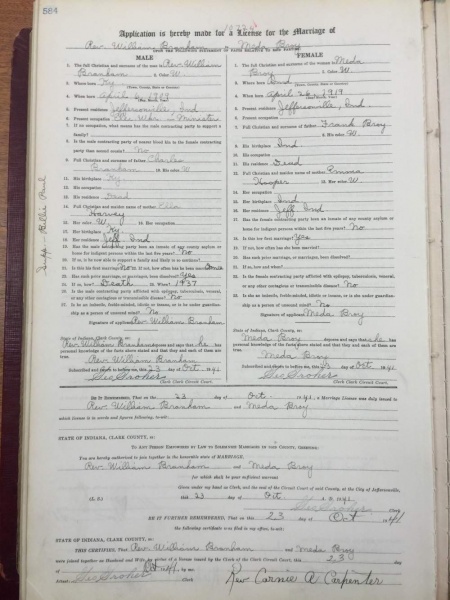 584
Application is hereby made for a License for the Marriage of
Rev. William Branham and Meda Broy
UPON THE FOLLOWING STATEMENT OF FACTS RELATIVE TO SAID PARTIES
MALE
1. The full Christian and surname of the man is Rev. William
Branham 2. Color W
3. Where born Ky
(Town, County, State or Country)
4. When born April 6, 1909
5. Present residence Jeffersonville, Ind
6. Present occupation Minister
7. If no occupation, what means has the male contracting party to support a
family?
8. Is the male contracting party of nearer blood kin to the female contracting
party than second cousin? No
9. Full Christian and surname of father Charles
Branham 10. His color W
11. His birthplace Ky.
12. His occupation
13. His residence Dead
14. Full Christian and maiden name of mother Ella
Harvey
15. Her color W 16. Her occupation
17. Her birthplace Ky
18. Her residence Jeff Ind
19. Has the male contracting party been an inmate of any county asylum or
home for indigent persons within the last five years? No
20. If so, is he now able to support a family and likely to so continue?
21. Is this his first marriage? No 22. If not, how often has he been married? Once
23. Has such prior marriage, or marriages, been dissolved? Yes
24. If so, how? Death 25. When? 1937
26. Is the male contracting party afflicted with epilepsy, tuberculosis, venereal,
or any other contagious or transmissible disease? No
27. Is he an imbecile, feeble-minded, idiotic or insane, or is he under guardian-
ship as a person of unsound mind? No
Signature of applicant Rev. William Branham
State of Indiana, Clark County, ss:
Rev. William Branham deposes and says that he has
personal knowledge of the facts above stated and that they and each of them are
true.
Rev. William Branham
Subscribed and sworn to before me, this 23 day of Oct. 1941
Clerk Clark Circuit Court.
FEMALE
1. The full Christian and surname of the woman is Meda
Broy 2. Color W
3. Where born Ind
(Town, County, State or Country)
4. When born April 26, 1919
5. Present residence Jeffersonville, Ind.
6. Present occupation
7. Full Christian and surname of father Frank Broy
8. His color W.
9. His birthplace Ind
10. His occupation
11. His residence Dead
12. Full Christian and maiden name of mother Emma
Hooper 13. Her color W.
14. Her occupation
15. Her birthplace Ind
16. Her residence Jeff. Ind
17. Has the female contracting party been an inmate of any county asylum or
home for indigent persons within the last five years? No
18. Is this her first marriage? Yes
19. If not, how often has she been married?
20. Has such prior marriage, or marriages, been dissolved?
21. If so, and how?
22. Is the female contracting party afflicted with epilepsy, tuberculosis, venereal,
or any other contagious or transmissible disease? No
23. Is she an imbecile, feeble-minded, idiotic or insane, or is she under guardian-
ship as a person of unsound mind? No.
Signature of applicant Meda Broy
State of Indiana, Clark County, ss:
Meda Broy deposes and says that she has
personal knowledge of the facts above stated and that they and each of them are
true.
Meda Broy
Subscribed and sworn to before me, this 23 day of Oct. 1941
Clerk Clark Circuit Court.
BE IT REMEMBERED, That on the 23 day of Oct. 1941, a Marriage License was duly issued to
Rev. William Branham and Meda Broy
which license is in words and figures following, to-wit:
STATE OF INDIANA, CLARK COUNTY, ss:
TO ANY PERSON EMPOWERED BY LAW TO SOLEMNIZE MARRIAGES IN SAID COUNTY, GREETING:
You are hereby authorized to join together in the honorable state of MARRIAGE,
Rev. William Branham and Meda Broy
for which shall be your sufficient warrant
Given under my hand as Clerk, and the seal of the Circuit Court of said County, at the City of Jeffersonville,
(L. S.) this 23 day of Oct. A. D. 1941
Clerk
BE IT FURTHER REMEMBERED, That on this 23 day of Oct 1941
the following certificate was filed in my office, to-wit:
STATE OF INDIANA, CLARK COUNTY, ss:
THIS CERTIFIES, That Rev. William Branham and Meda Broy
were joined together as Husband and Wife by virtue of a license issued by the Clerk of the Clark Circuit Court, this 23
day of Oct 1941 by me.
Attest Clerk Rev. Carnie A. Carpenter